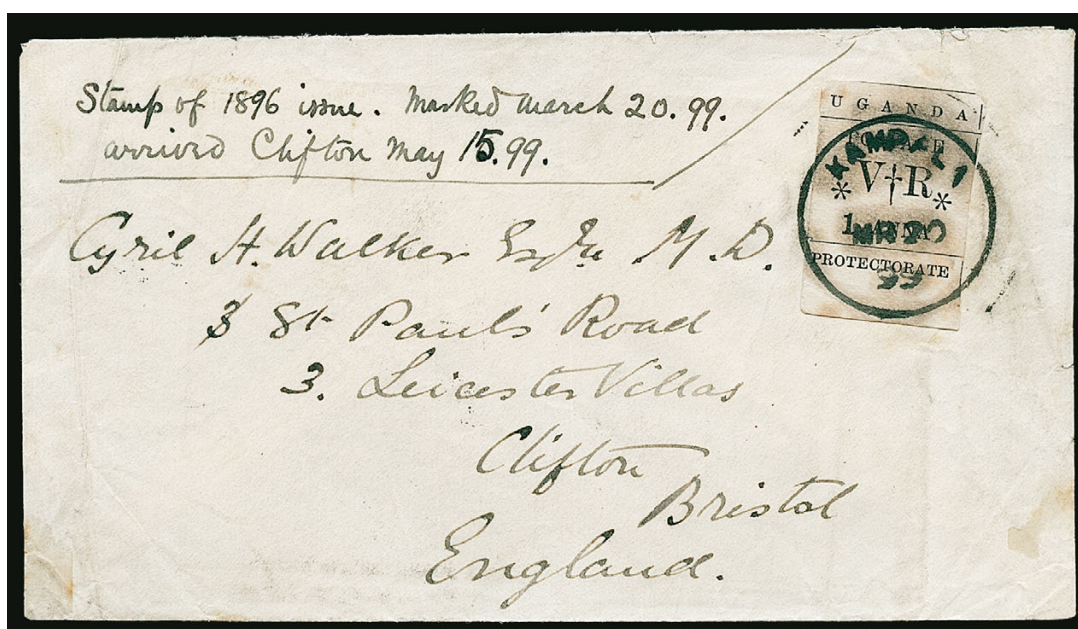 Stamp of 1896 issue. Marked March 20.99.
arrived Clifton May 15.99.
UGANDA
POSTAGE
V†R
1 ANNA
PROTECTORATE
KAMPALA
MR 20
99
Cyril H. Walker Esqre M.D.
St Paul's Road
3. Leicester Villas
Clifton
Bristol
England.